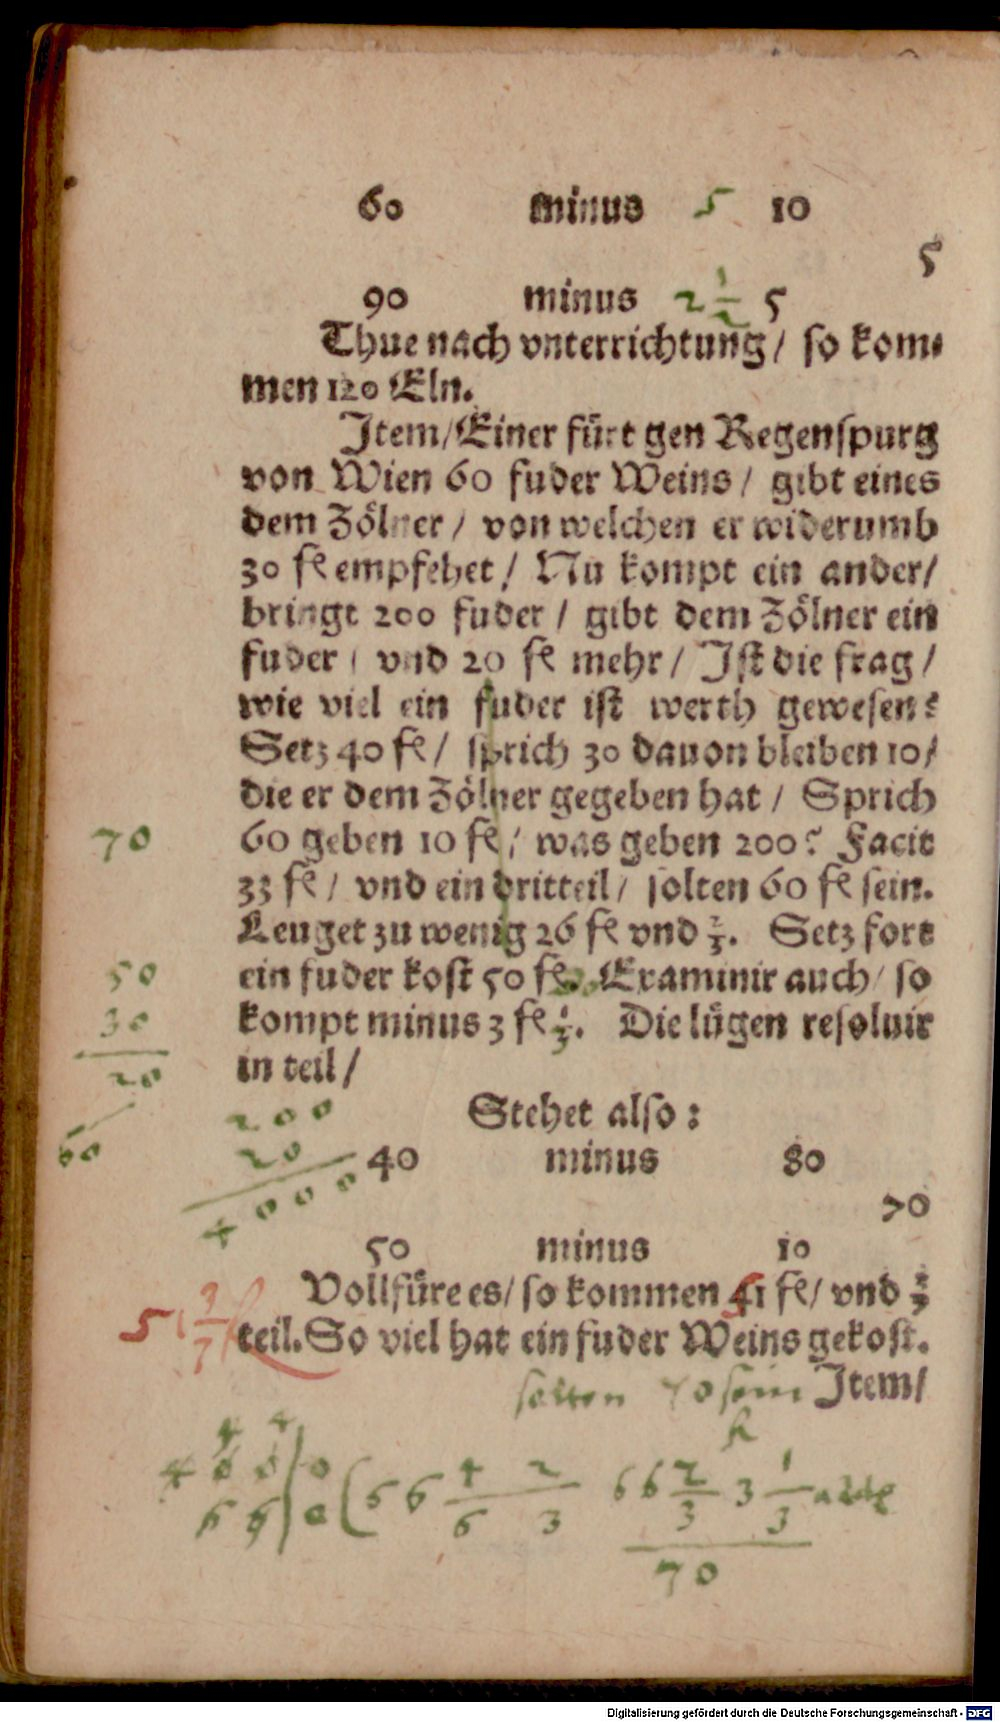 60 minus 5 10
5
90 minus 2 1/2 5
Thue nach vnterrichtung / so kom⸗
men 120 Eln.
Item/ Einer fürt gen Regenspurg
von Wien 60 fuder Weins / gibt eines
dem Zölner / von welchen er widerumb
30 fl empfehet / Nu kompt ein ander/
bringt 200 fuder / gibt dem Zölner ein
fuder / vnd 20 fl mehr / Ist die frag /
wie viel ein fuder ist werth gewesen?
Setz 40 fl / sprich 30 dauon bleiben 10/
die er dem Zölner gegeben hat / Sprich
70
60 geben 10 fl / was geben 200? Facit
33 fl / vnd ein dritteil / solten 60 fl sein.
Leuget zu wenig 26 fl vnd 2/3. Setz fort
50
ein fuder kost 50 fl. Examinir auch / so
30
kompt minus 3 fl 1/3. Die lügen resoluir
20
in teil /
60
200
Stehet also:
20
40 minus 80
4000
70
50 minus 10
Vollfüre es/ so kommen 41 fl/ vnd 3/7
5 3/7
teil. So viel hat ein fuder Weins gekost.
solten 70 sein
Item/
fl
4 4
4 0 0 | 0
6 6 | 0 ( 66 4/6 2/3 66 2/3 3 1/3 adde
70
Digitalisierung gefördert durch die Deutsche Forschungsgemeinschaft - DFG